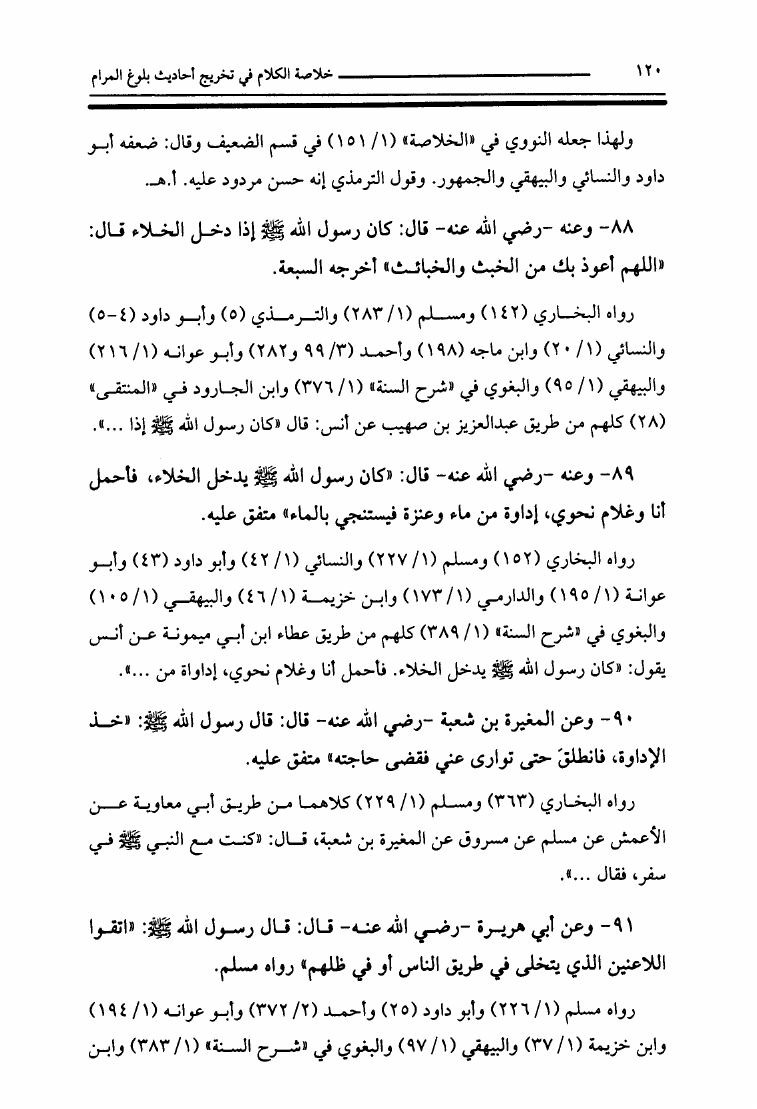 ١٢٠ خلاصة الكلام في تخريج أحاديث بلوغ المرام
ولهذا جعله النووي في «الخلاصة» (١/ ١٥١) في قسم الضعيف وقال: ضعفه أبو
داود والنسائي والبيهقي والجمهور. وقول الترمذي إنه حسن مردود عليه. أ.هـ.
٨٨- وعنه -رضي الله عنه- قال: كان رسول الله ﷺ إذا دخل الخلاء قال:
«اللهم أعوذ بك من الخبث والخبائث» أخرجه السبعة.
رواه البخاري (١٤٢) ومسلم (١/ ٢٨٣) والترمذي (٥) وأبو داود (٤-٥)
والنسائي (١/ ٢٠) وابن ماجه (١٩٨) وأحمد (٣/ ٩٩ و٢٨٢) وأبو عوانه (١/ ٢١٦)
والبيهقي (١/ ٩٥) والبغوي في «شرح السنة» (١/ ٣٧٦) وابن الجارود في «المنتقى»
(٢٨) كلهم من طريق عبدالعزيز بن صهيب عن أنس: قال «كان رسول الله ﷺ إذا ...».
٨٩- وعنه -رضي الله عنه- قال: «كان رسول الله ﷺ يدخل الخلاء، فأحمل
أنا وغلام نحوي، إداوة من ماء وعنزة فيستنجي بالماء» متفق عليه.
رواه البخاري (١٥٢) ومسلم (١/ ٢٢٧) والنسائي (١/ ٤٢) وأبو داود (٤٣) وأبو
عوانة (١/ ١٩٥) والدارمي (١/ ١٧٣) وابن خزيمة (١/ ٤٦) والبيهقي (١/ ١٠٥)
والبغوي في «شرح السنة» (١/ ٣٨٩) كلهم من طريق عطاء ابن أبي ميمونة عن أنس
يقول: «كان رسول الله ﷺ يدخل الخلاء. فأحمل أنا وغلام نحوي، إداواة من ...».
٩٠- وعن المغيرة بن شعبة -رضي الله عنه- قال: قال رسول الله ﷺ: «خذ
الإداوة، فانطلقَ حتى توارى عني فقضى حاجته» متفق عليه.
رواه البخاري (٣٦٣) ومسلم (١/ ٢٢٩) كلاهما من طريق أبي معاوية عن
الأعمش عن مسلم عن مسروق عن المغيرة بن شعبة، قال: «كنت مع النبي ﷺ في
سفر، فقال ...».
٩١- وعن أبي هريرة -رضي الله عنه- قال: قال رسول الله ﷺ: «اتقوا
اللاعنين الذي يتخلى في طريق الناس أو في ظلهم» رواه مسلم.
رواه مسلم (١/ ٢٢٦) وأبو داود (٢٥) وأحمد (٢/ ٣٧٢) وأبو عوانه (١/ ١٩٤)
وابن خزيمة (١/ ٣٧) والبيهقي (١/ ٩٧) والبغوي في «شرح السنة» (١/ ٣٨٣) وابن